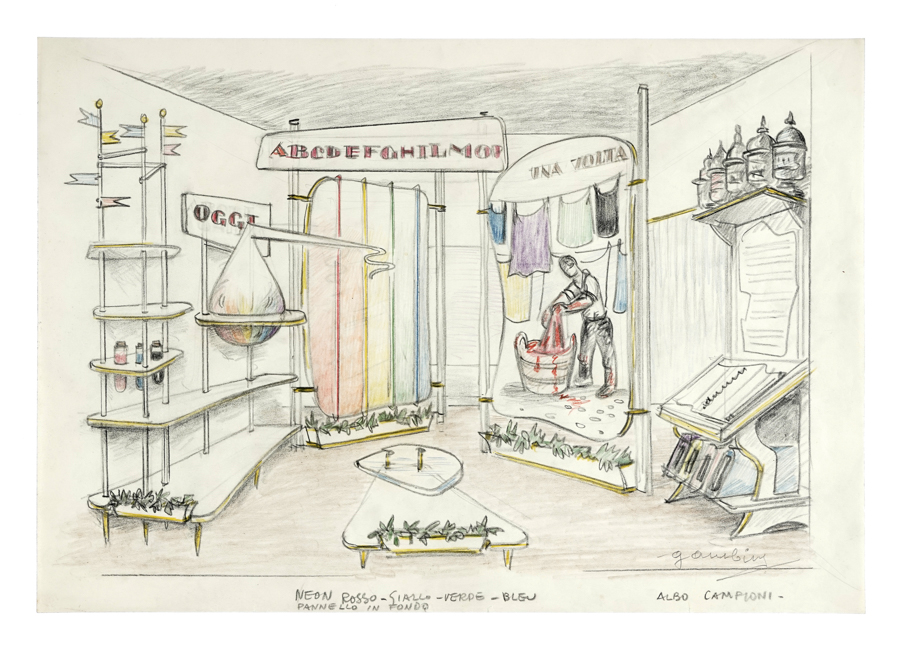 ABCDEFGHILMOP
UNA VOLTA
OGGI
gambini
NEON ROSSO - GIALLO - VERDE - BLEU
PANNELLO IN FONDO
ALBO CAMPIONI -